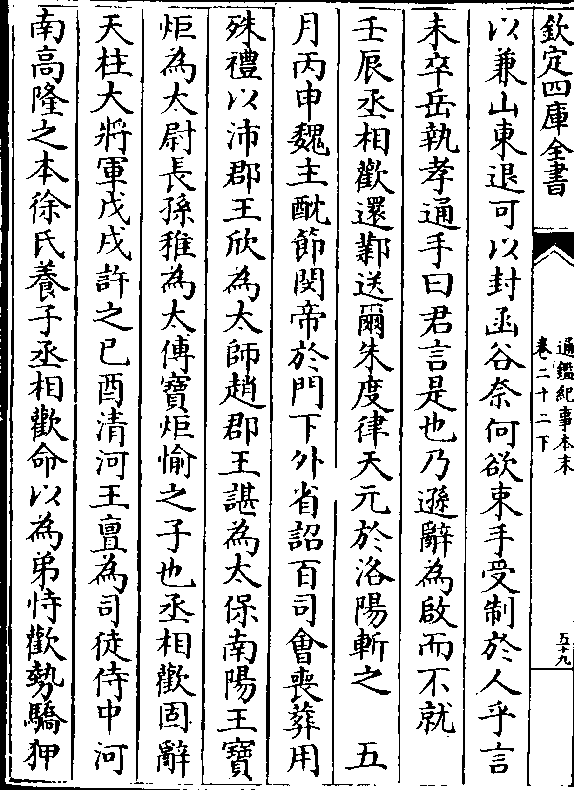 欽定四庫全書
通鑑紀事本末
卷二十二下
五十九
以兼山東退可以封函谷奈何欲束手受制於人乎言
未卒岳執孝通手曰君言是也乃遜辭為啟而不就
壬辰丞相歡還鄴送爾朱度律天光於洛陽斬之 五
月丙申魏主酖節閔帝於門下外省詔百司會喪葬用
殊禮以沛郡王欣為太師趙郡王諶為太保南陽王寶
炬為太尉長孫稚為太傅寶炬愉之子也丞相歡固辭
天柱大將軍戊戌許之己酉清河王亶為司徒侍中河
南高隆之本徐氏養子丞相歡命以為弟恃歡勢驕狎